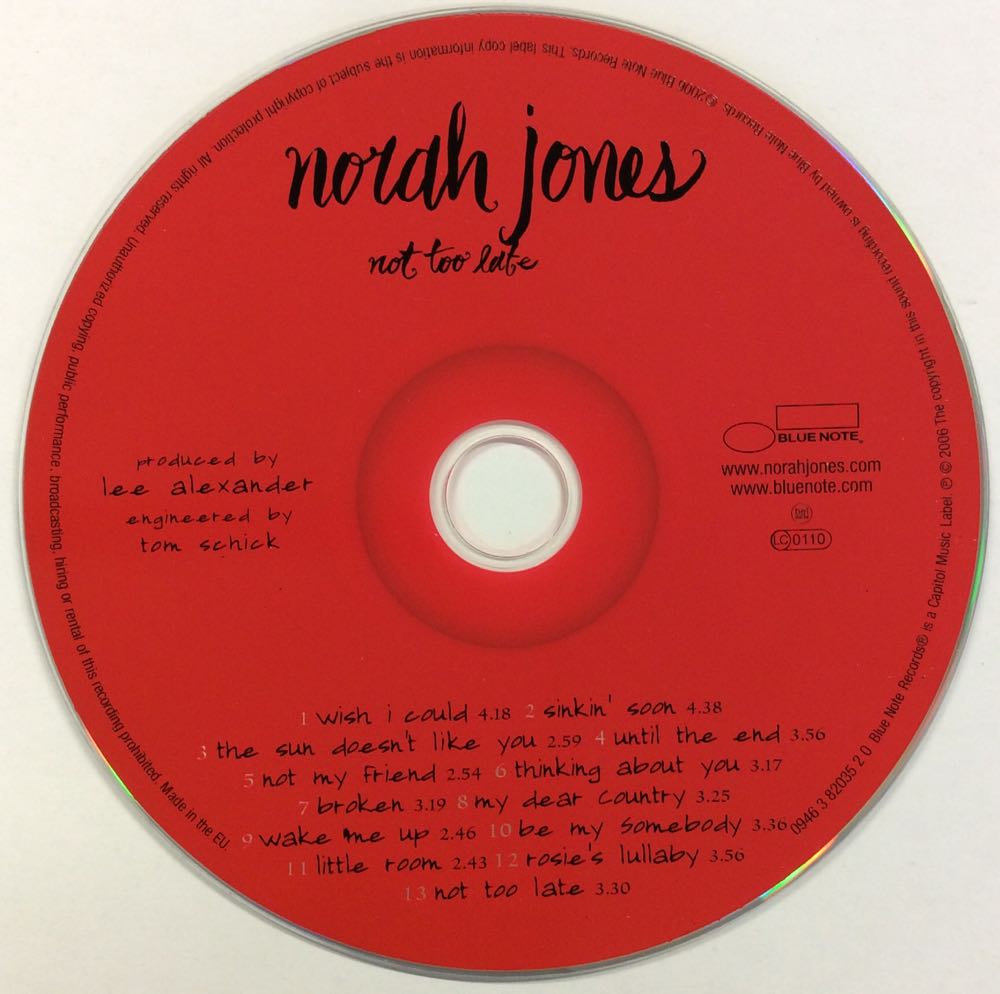 norah jones
not too late
BLUE NOTE
www.norahjones.com
www.bluenote.com
LC 0110
produced by
lee alexander
engineered by
tom schick
1 wish i could 4.18 2 sinkin' soon 4.38
3 the sun doesn't like you 2.59 4 until the end 3.56
5 not my friend 2.54 6 thinking about you 3.17
7 broken 3.19 8 my dear country 3.25
9 wake me up 2.46 10 be my somebody 3.36
11 little room 2.43 12 rosie's lullaby 3.56
13 not too late 3.30
0946 3 82035 2 0 Blue Note Records® is a Capitol Music Label ℗ © 2006 The copyright in this sound recording is owned by Blue Note Records. ©2006 Blue Note Records. This label copy information is the subject of copyright protection. All rights reserved. Unauthorized copying, public performance, broadcasting, hiring or rental of this recording prohibited. Made in the EU.